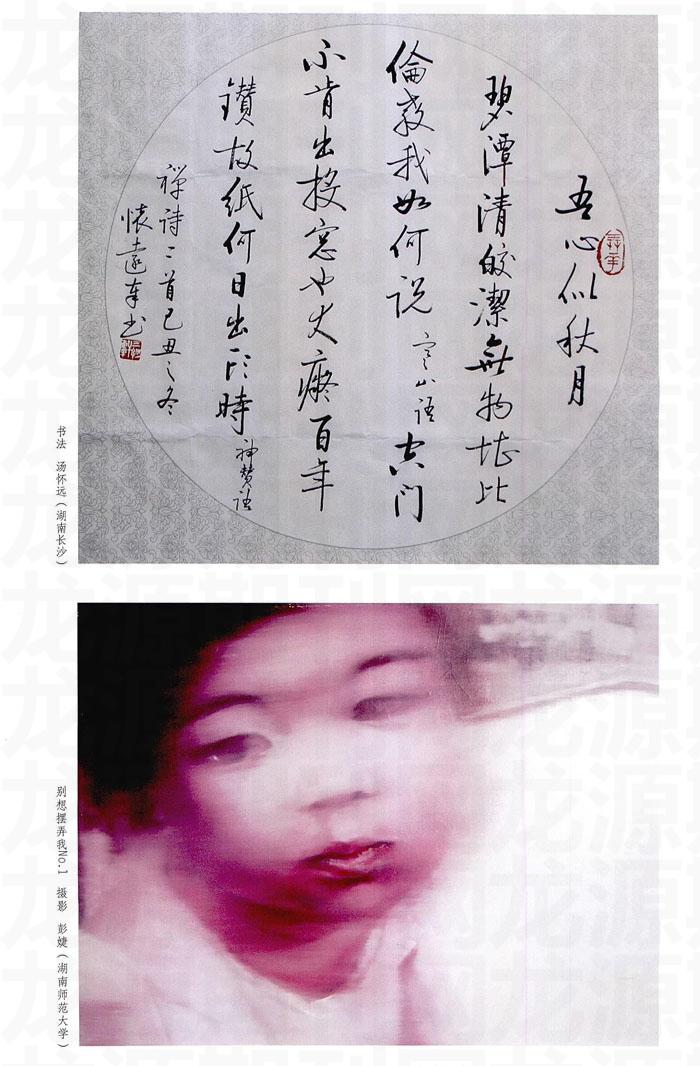 吾心似秋月
碧潭清皎潔無物堪比
倫教我如何说 寒山語 空门
不肯出投窓也大癡百年
鑽故紙何日出头時 神赞語
禅詩二首己丑之冬
懷遠书
书法 汤怀远（湖南长沙）
别想摆弄我No.1 摄影 彭婕（湖南师范大学）
龙源期刊网